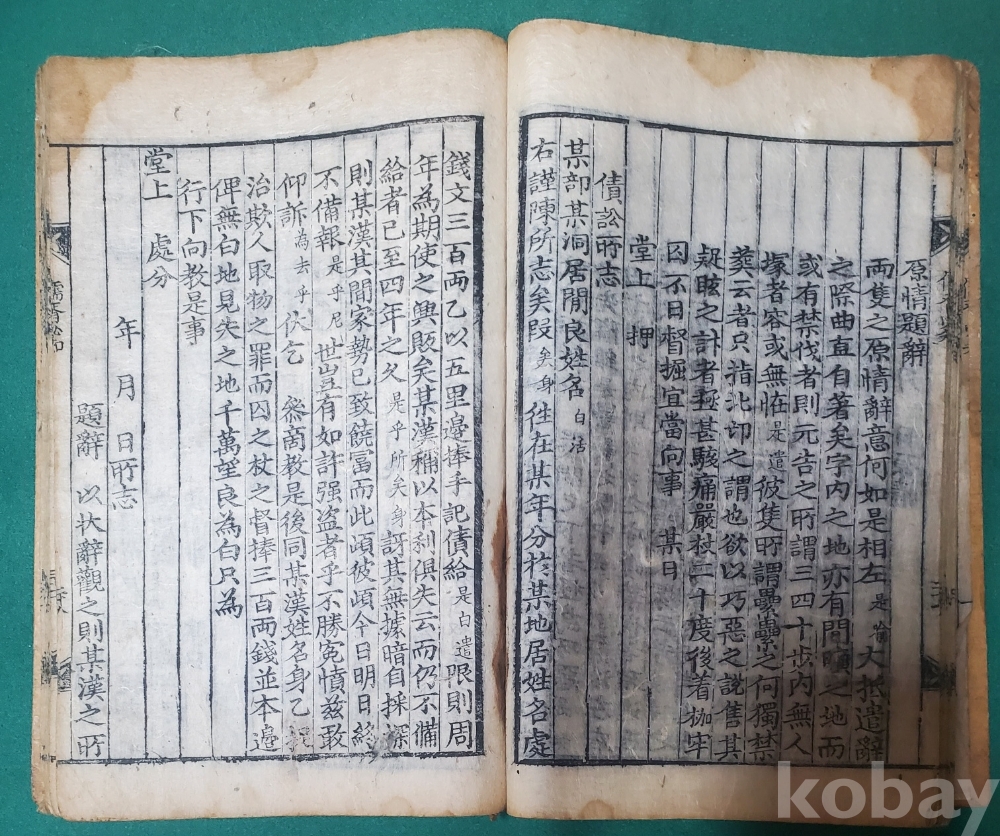 原情題辭
兩隻之原情辭意何如是相左是喩大抵遣辭
之際曲直自著矣字內之地亦有間曠之地而
或有禁伐者則元告之所謂三四十步內無人
塚者容或無恠是遣彼隻所謂疊疊之何獨禁
葬云者只指北邙之謂也欲以巧惡之說售其
疑眩之計者極甚駭痛嚴杖二十度後着枷牢
囚不日督掘宜當向事 某日
堂上 押
債訟所志
某部某洞居閑良姓名白活
右謹陳所志矣段矣身徃在某年分於某地居姓名處
錢文三百兩乙以五里邊捧手記債給是白遣限則周
年為期使之興販矣某漢稱以本利俱失云而仍不備
給者已至四年之久是乎所矣身訝其無據暗自採探
則某漢其間家勢已致饒富而此頃彼頃今日明日終
不備報是乎尼世豈有如許强盜者乎不勝冤憤玆敢
仰訴為去乎伏乞 叅商教是後同某漢姓名身乙
治欺人取物之罪而囚之杖之督捧三百兩錢並本邊
俾無白地見失之地千萬望良為白只為
行下向教是事
堂上 處分
年 月 日所志
題辭 以狀辭觀之則某漢之所
儒胥必知
kobay